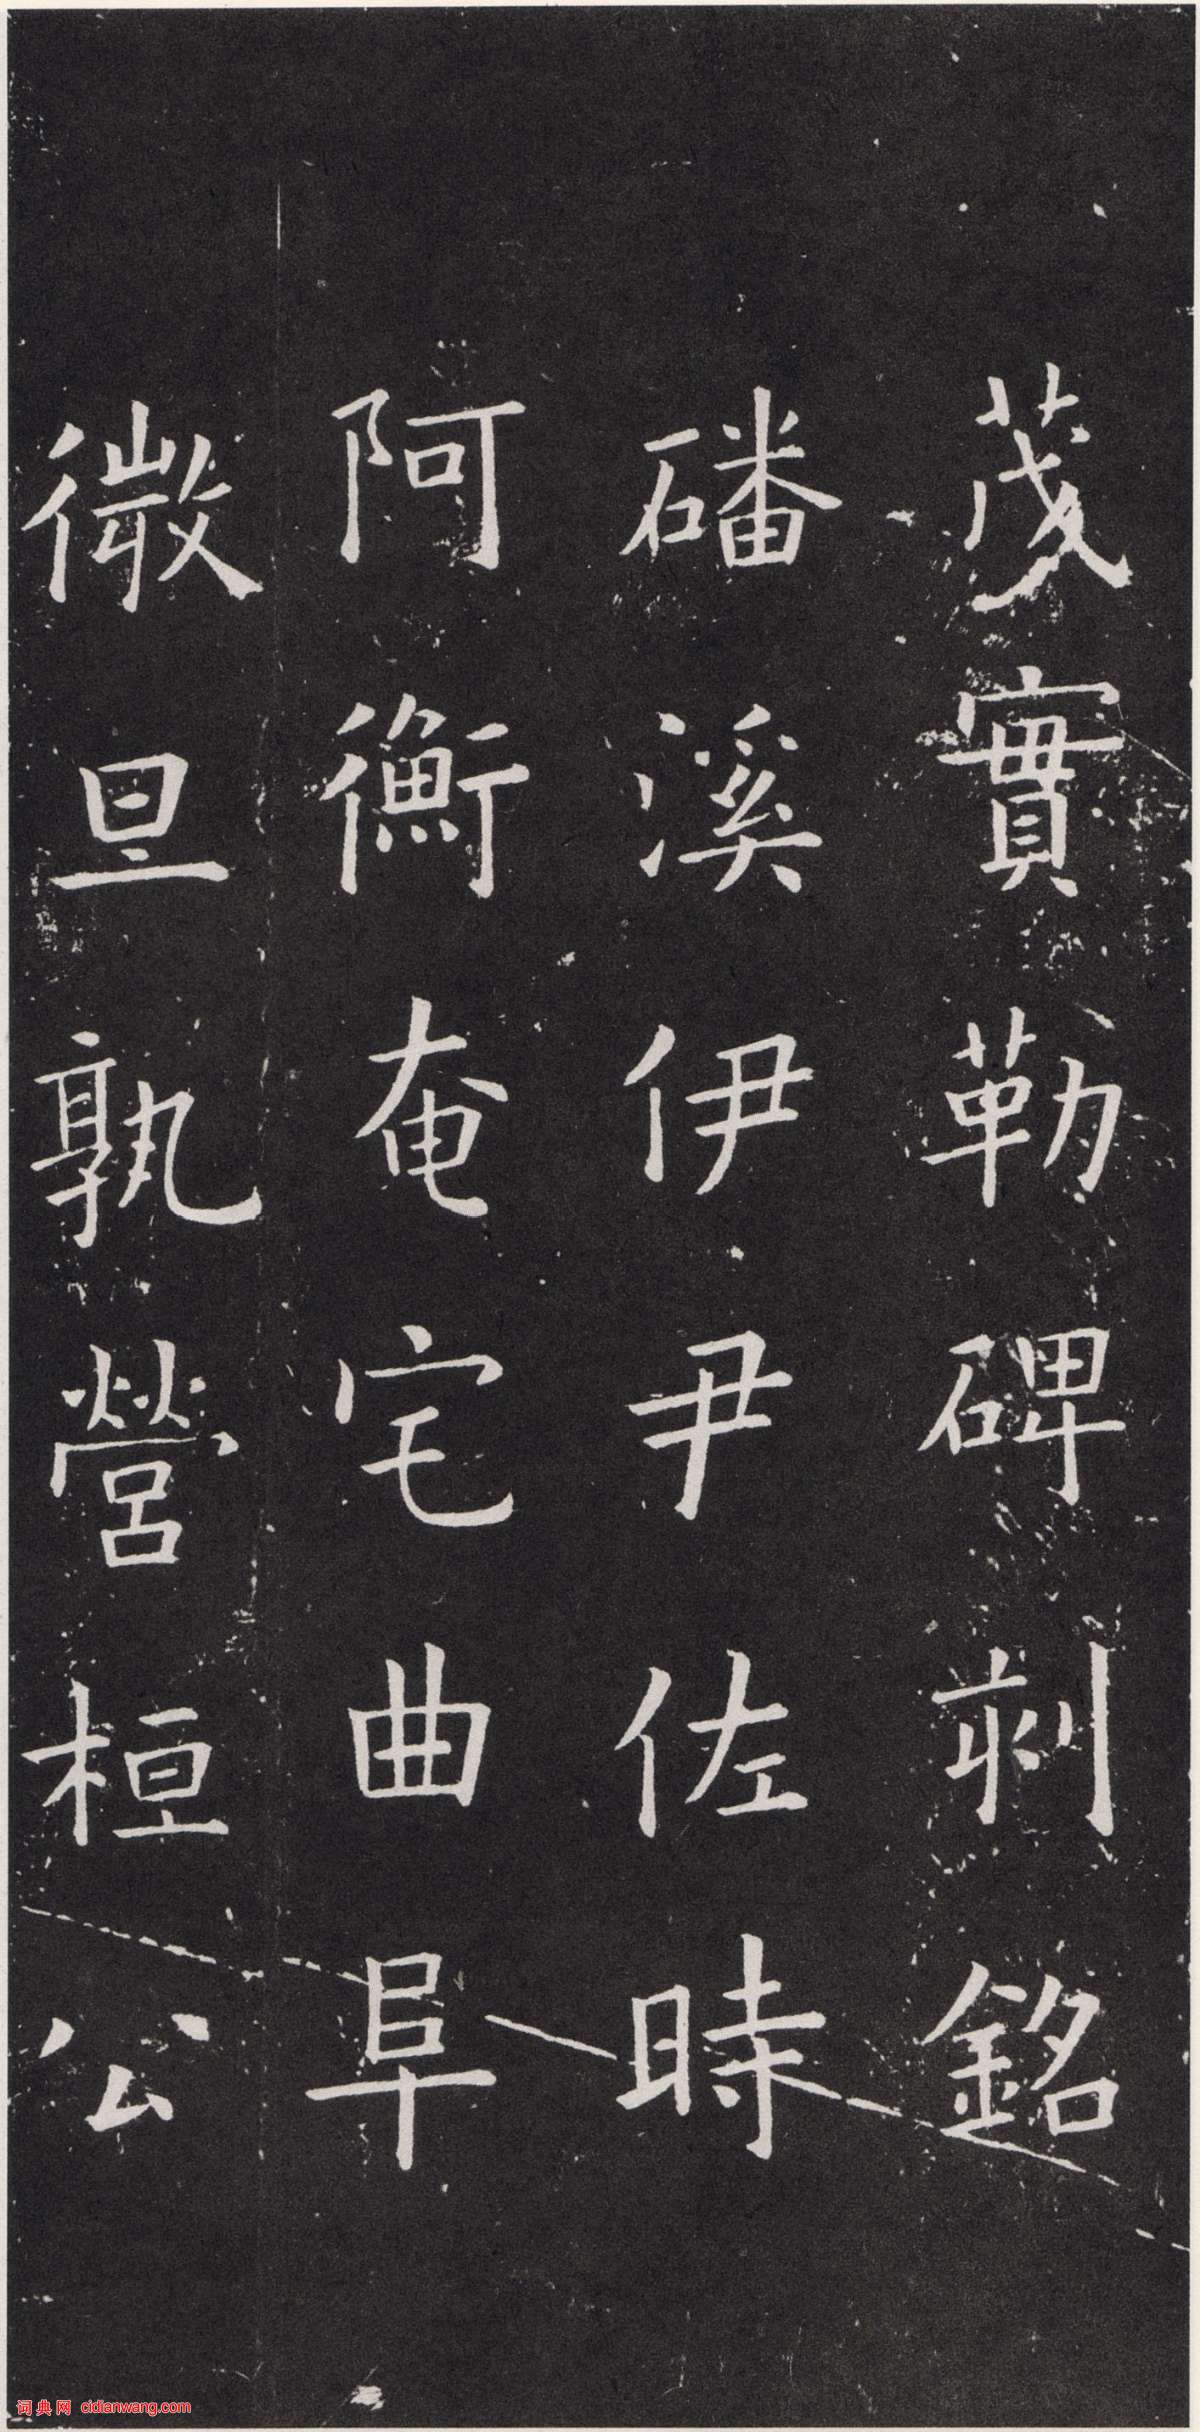 茂實勒碑刻銘
磻溪伊尹佐時
阿衡奄宅曲阜
微旦孰營桓公
词典网 cidianwang.com